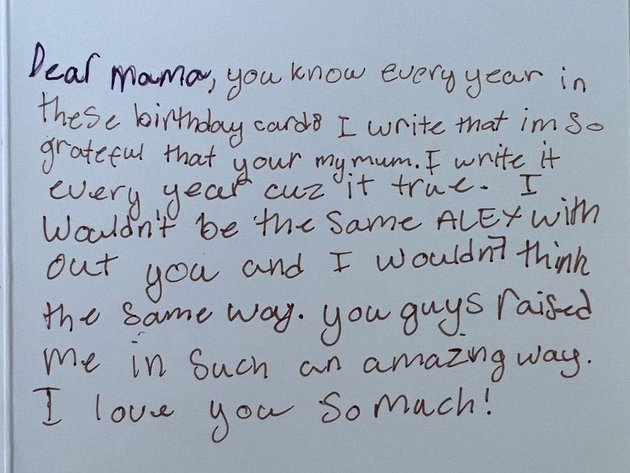 Dear mama, you know every year in
these birthday cards I write that im so
grateful that your my mum. I write it
every year cuz it true. I
wouldn't be the same ALEX with
out you and I wouldn't think
the same way. you guys raised
me in such an amazing way.
I love you so much!